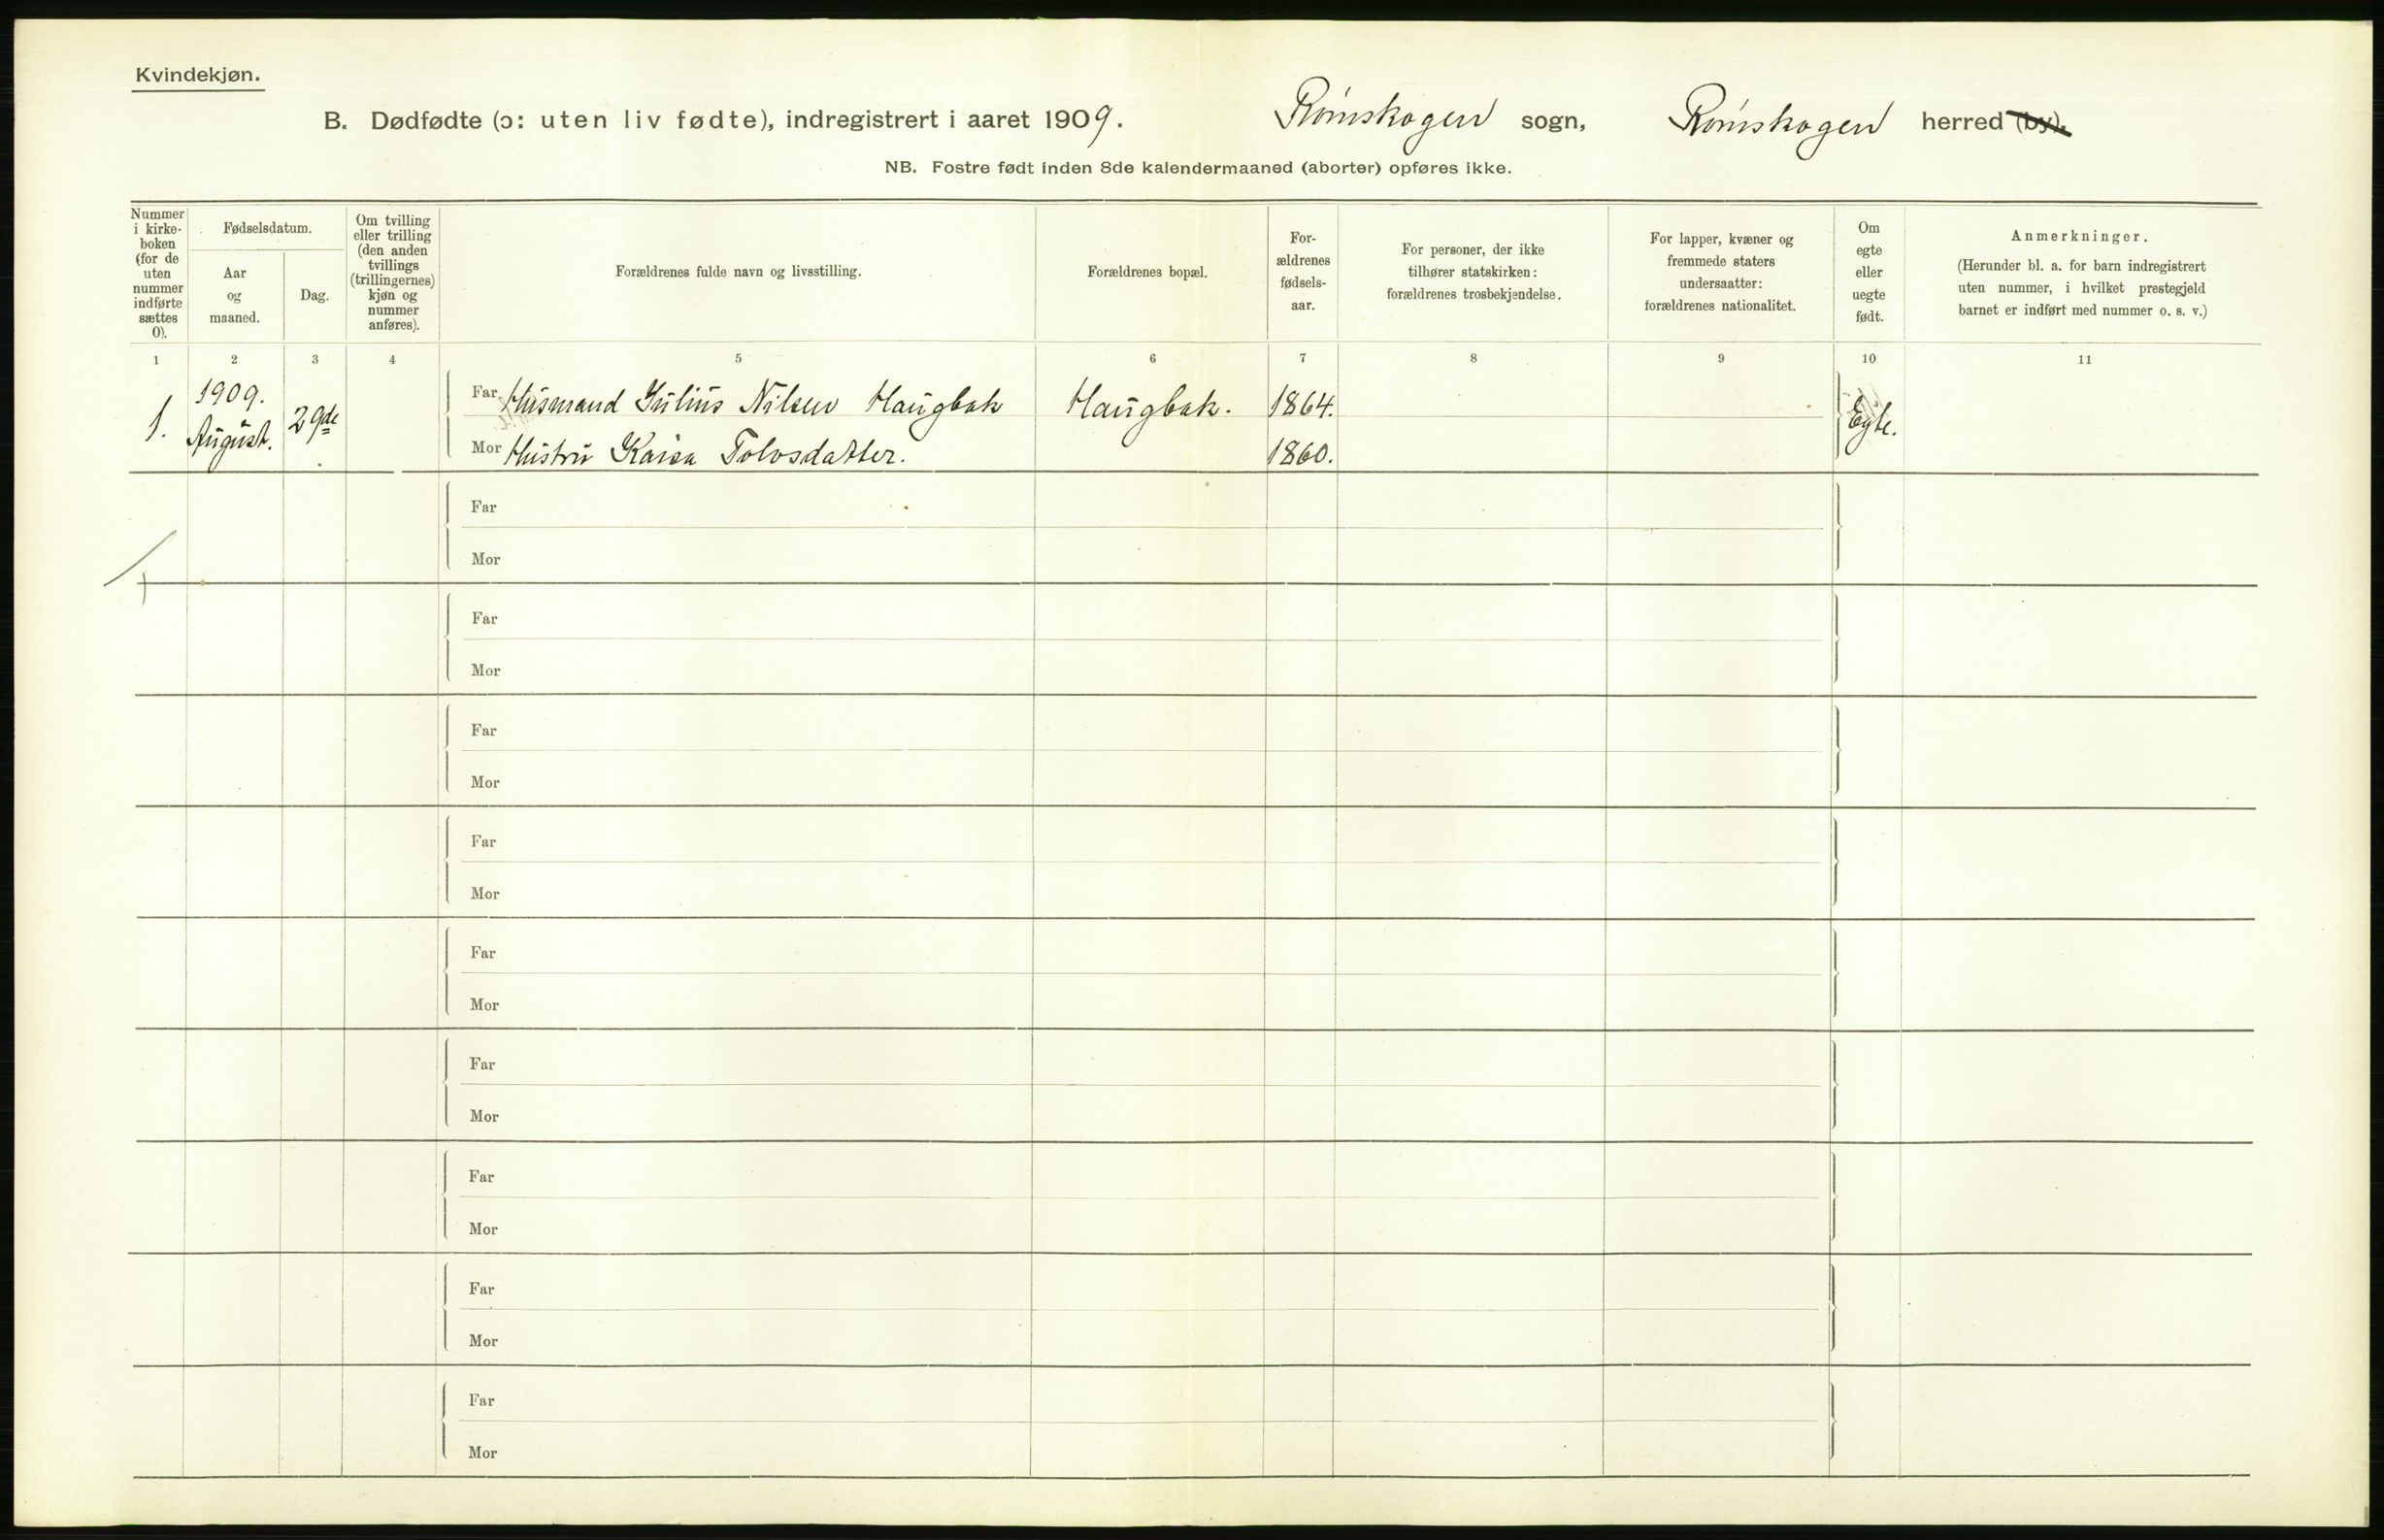 Kvindekjøn.
B. Dødfødte (ɔ: uten liv fødte), indregistrert i aaret 1909. Rømskogen sogn, Rømskogen herred (by).
NB. Fostre født inden 8de kalendermaaned (aborter) opføres ikke.
Nummer i kirke-boken (for de uten nummer indførte sættes 0).
Fødselsdatum.
Aar og maaned.
Dag.
Om tvilling eller trilling (den anden tvillings (trillingernes) kjøn og nummer anføres).
Forældrenes fulde navn og livsstilling.
Forældrenes bopæl.
For-ældrenes fødsels-aar.
For personer, der ikke tilhører statskirken: forældrenes trosbekjendelse.
For lapper, kvæner og fremmede staters undersaatter: forældrenes nationalitet.
Om egte eller uegte født.
Anmerkninger.
(Herunder bl. a. for barn indregistrert uten nummer, i hvilket prestegjeld barnet er indført med nummer o. s. v.)
1 2 3 4 5 6 7 8 9 10 11
1. 1909. August. 29de
Far Husmand Julius Nilsen Haugbak Haugbak. 1864. Egte.
Mor Hustru Kaisa Tolvsdatter. 1860.
Far
Mor
Far
Mor
Far
Mor
Far
Mor
Far
Mor
Far
Mor
Far
Mor
Far
Mor
Far
Mor